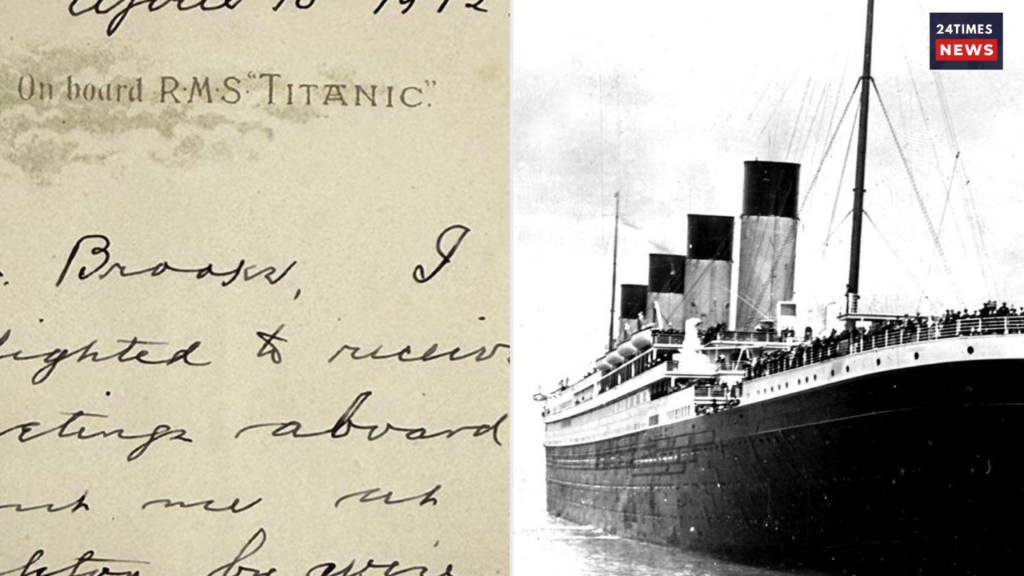 April 10 1912.
On board R·M·S "TITANIC".
Brooks, I
lighted to receiv
etings aboard
me at
by wire
24TIMES
NEWS